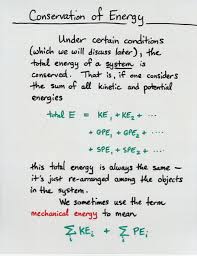 Conservation of Energy
Under certain conditions
(which we will discuss later), the
total energy of a system is
conserved. That is, if one considers
the sum of all kinetic and potential
energies
total E = KE₁ + KE₂ + ...
+ GPE₁ + GPE₂ + ...
+ SPE₁ + SPE₂ + ...
this total energy is always the same —
it's just re-arranged among the objects
in the system.
We sometimes use the term
mechanical energy to mean
∑ᵢ KEᵢ + ∑ᵢ PEᵢ